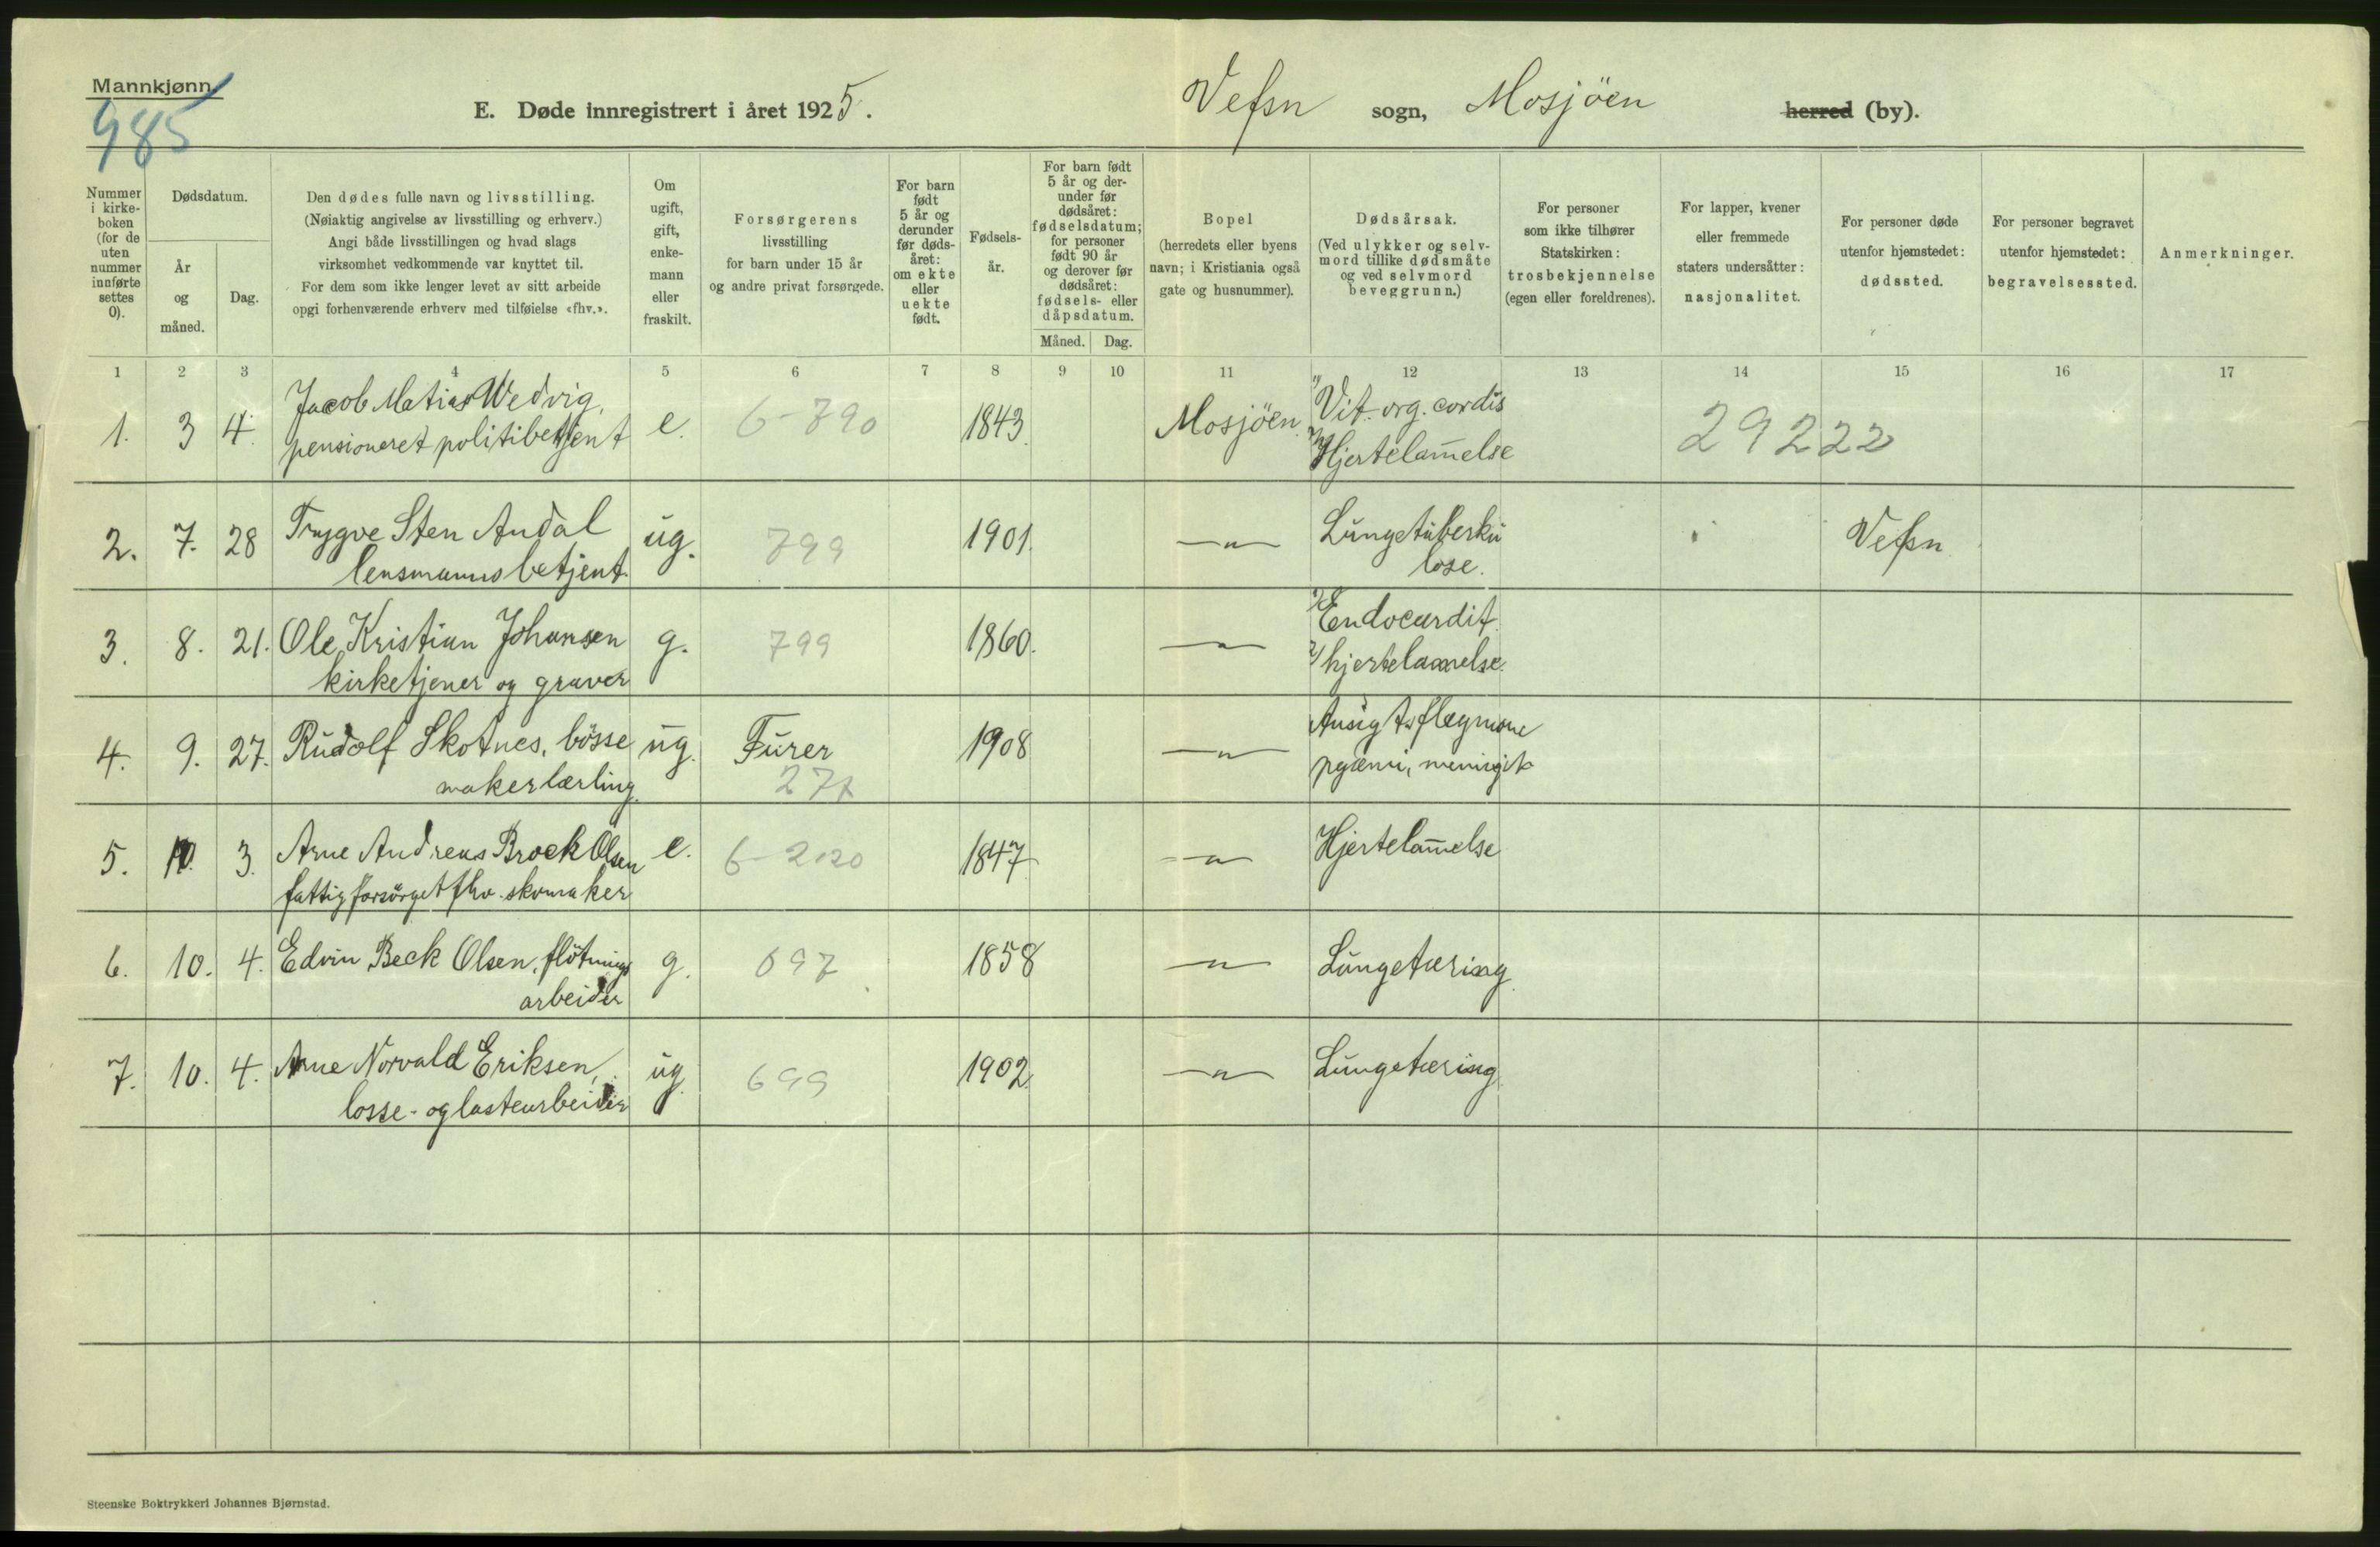 Mannkjønn
985
E. Døde innregistrert i året 1925.
Vefsn sogn, Mosjöen herred (by).
Nummer i kirke-boken (for de uten nummer innførte settes 0).
Dødsdatum.
År og måned.
Dag.
Den dødes fulle navn og livsstilling.
(Nøiaktig angivelse av livsstilling og erhverv.)
Angi både livsstillingen og hvad slags
virksomhet vedkommende var knyttet til.
For dem som ikke lenger levet av sitt arbeide
opgi forhenværende erhverv med tilføielse «fhv.».
Om ugift, gift, enke-mann eller fraskilt.
Forsørgerens
livsstilling
for barn under 15 år
og andre privat forsørgede.
For barn født 5 år og derunder før døds-året: om ekte eller uekte født.
Fødsels-år.
For barn født 5 år og der-under før dødsåret: fødselsdatum; for personer født 90 år og derover før dødsåret: fødsels- eller dåpsdatum.
Måned. Dag.
Bopel
(herredets eller byens
navn; i Kristiania også
gate og husnummer).
Dødsårsak.
(Ved ulykker og selv-
mord tillike dødsmåte
og ved selvmord
beveggrunn.)
For personer
som ikke tilhører
Statskirken:
trosbekjennelse
(egen eller foreldrenes).
For lapper, kvener
eller fremmede
staters undersåtter:
nasjonalitet.
For personer døde
utenfor hjemstedet:
dødssted.
For personer begravet
utenfor hjemstedet:
begravelsessted.
Anmerkninger.
1 2 3 4 5 6 7 8 9 10 11 12 13 14 15 16 17
1. 3 4. Jacob Matias Wedvig, e. 6-790 1843. Mosjöen. 1) Vit. org. cordis 29222
pensioneret politibetjent 2) Hjertelam̅else
2. 7. 28 Trygve Sten Andal ug. 799 1901. —„— Lungetuberku Vefsn
lensmannsbetjent. lose.
3. 8. 21. Ole Kristian Johansen g. 799 1860. —„— 1) Endocardit.
kirketjener og graver 2) hjertelammelse.
4. 9. 27. Rudolf Skotnes, bösse ug. Furer 1908 —„— Ansigtsflegmone
makerlærling. 27 pyæmi,
5. 10. 3. Arne Andreas Brock Olsen e. 6-2 1847 —„— Hjertelam̅else
fattigforsörget fhv. skomaker
6. 10. 4. Edvin Beck Olsen, flötnings g. 697 1858 —„— Lungetæring.
arbeider
7. 10. 4. Arne Norvald Eriksen, ug. 699 1902. —„— Lungetæring
losse- og lastearbeider
Steenske Boktrykkeri Johannes Bjørnstad.